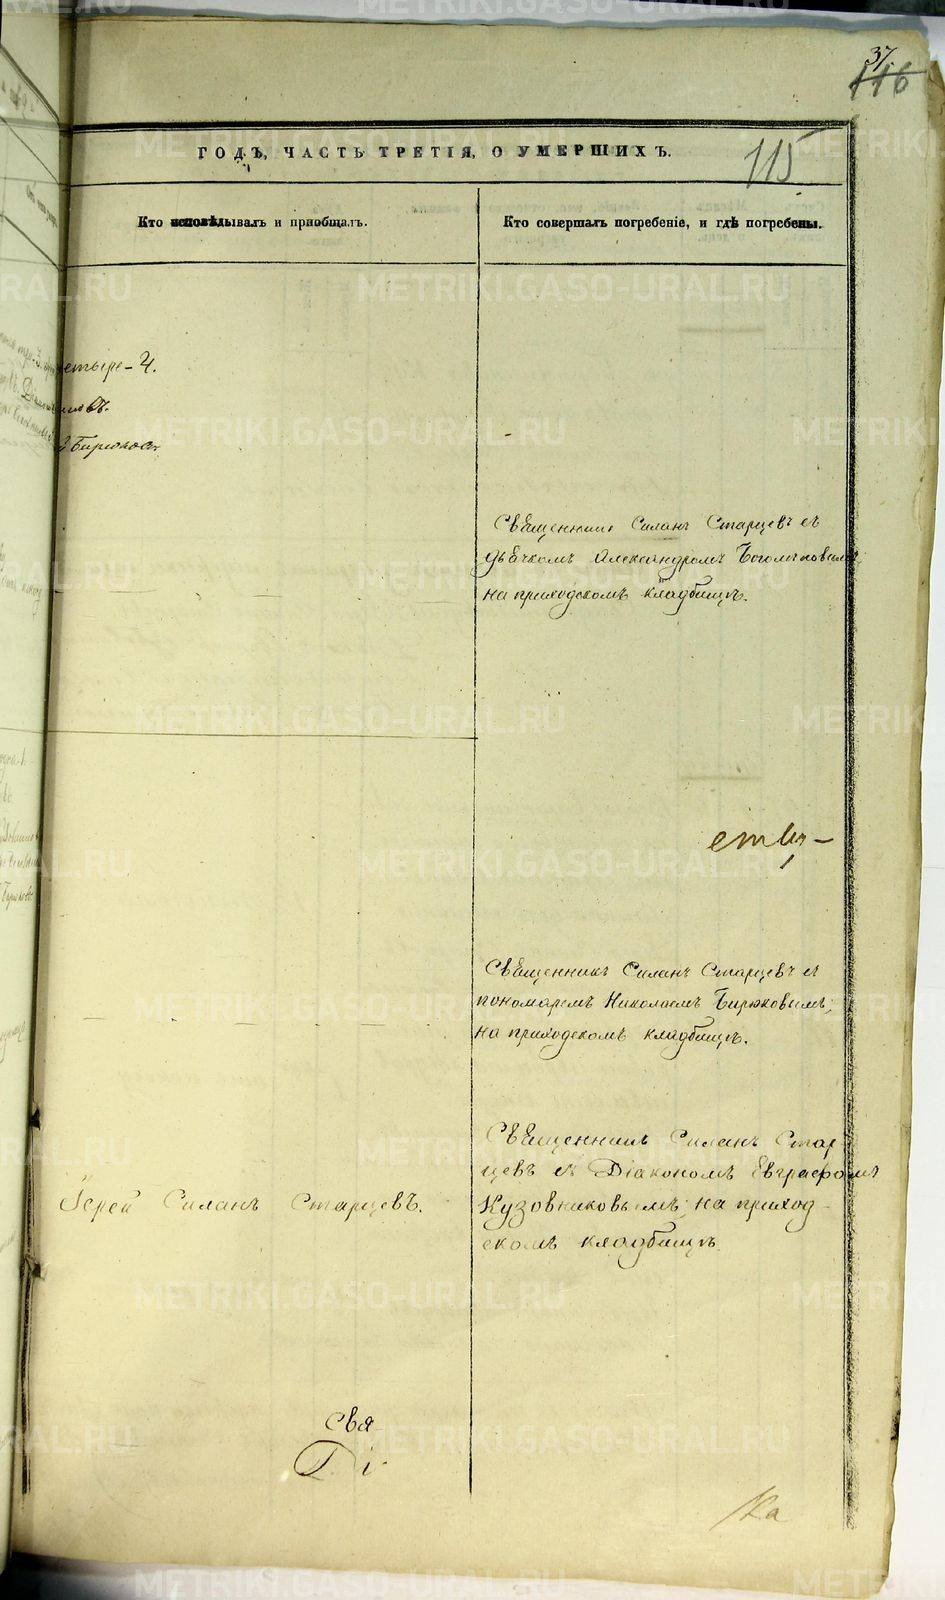 37.
116
115
ГОДЪ, ЧАСТЬ ТРЕТІЯ, О УМЕРШИХЪ.
Кто исповѣдывалъ и пріобщалъ.
Кто совершалъ погребеніе, и гдѣ погребены.
етыре - 4.
Бирюковъ
Священникъ Силанъ Старцевъ съ
дьячкомъ Александромъ
на приходскомъ кладбищѣ.
Священникъ Силанъ Старцевъ съ
пономаремъ Николаемъ Бирюковымъ;
на приходскомъ кладбищѣ.
Іерей Силанъ Старцевъ.
Священникъ Силанъ Стар-
цевъ съ Діакономъ Евграфомъ
Кузовниковымъ; на приход-
скомъ кладбищѣ.
Свя
Ді
Ка
METRIKI.GASO-URAL.RU